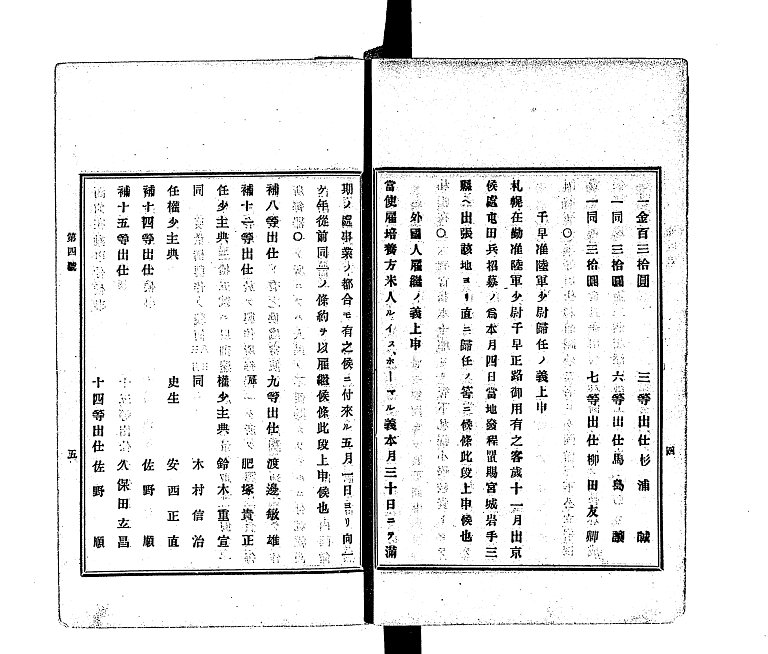 四
一金百三拾圓　三等出仕杉浦誠
一同　三拾圓　六等出仕馬島讓
一同　三拾圓　七等出仕柳田友卿
〇
千早准陸軍少尉歸任ノ義上申
札幌在勤准陸軍少尉千早正路御用有之客歳十一月出京
候處屯田兵招募ノ爲本月四日當地發程置賜宮城岩手三
縣ヘ出張該地ヨリ直ニ歸任ノ筈ニ候條此段上申候也
〇
外國人雇繼ノ義上申
當使雇培養方米人ルイス、ボーマル義本月三十日ニテ滿
期ノ處事業ノ都合モ有之候ニ付來ル五月一日ヨリ向一
ケ年從前同一ノ條約ヲ以雇繼候條此段上申候也
〇
補八等出仕　九等出仕　渡邊敏雄
補十一等出仕　雇　肥塚貴正
任少主典　權少主典　鈴木重宣
同　同　木村信治
任權少主典　史生　安西正直
補十四等出仕　佐野順
補十五等出仕　久保田玄昌
十四等出仕　佐野順
第四號
五